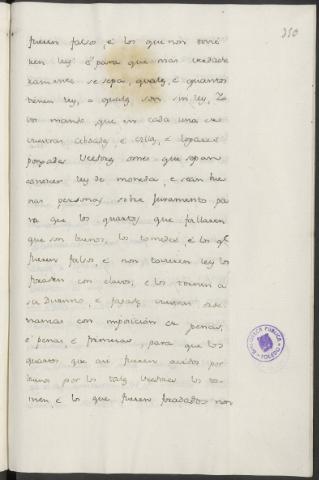 350
fueren falso, é los que non tovie
ren ley é para que mas verdade
ramente se sepa, quales, é quantos
tienen ley, é quales son sin ley, Yo
vos mando, que en cada una de
vuestras cibdades, é villas, é logares
pongades Vuestros omes que sepan
conocer ley de moneda, é sean bue
nas personas sobre juramento, pa
ra que los quartos que fallaren
que son buenos, los tomedes, é los q
fueren falsos, é non tovieren ley los
foraden con clavos, é los tornen á
su duenno, é fagades vuestras orde
nanzas con imposicion de penas,
é penas é premias, para que los
quartos que asi fueren avidos por
buenos por los tales veedores los to
men, é lo que fueren foradados non
BIBLIOTECA PUBLICA TOLEDO